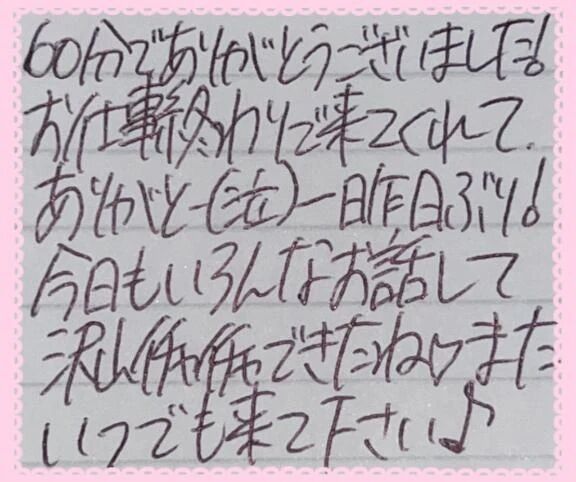 60分でありがとうございました!
お仕事終わりで来てくれて
ありがとー(泣)一昨日ぶり!
今日もいろんなお話して
沢山イチャイチャできたね♡また
いつでも来て下さい♪